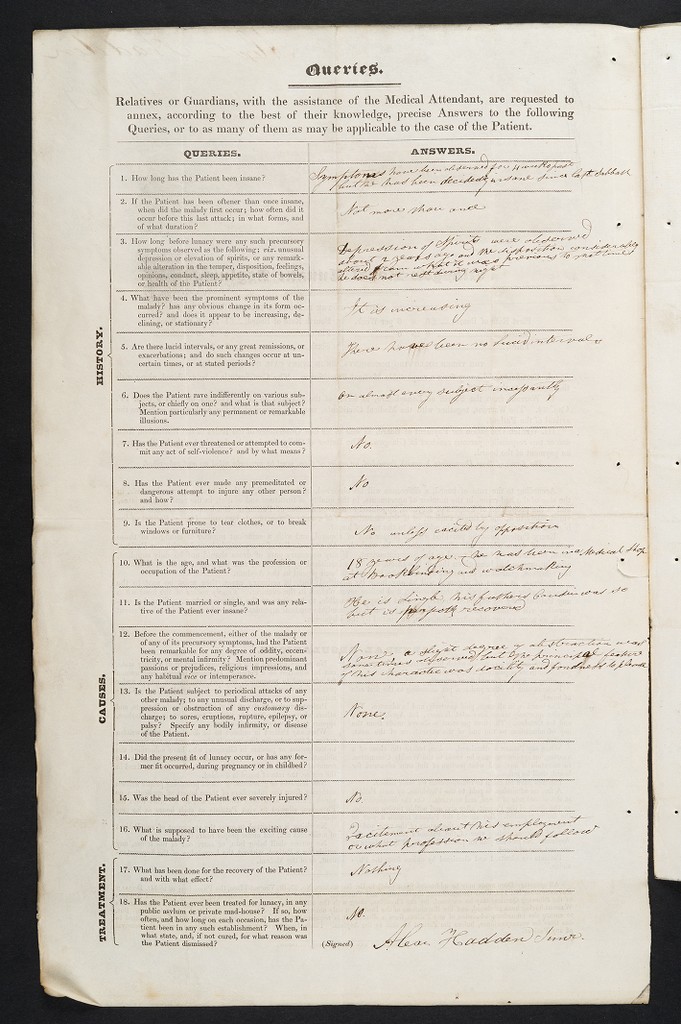 Queries.
Relatives or Guardians, with the assistance of the Medical Attendant, are requested to
annex, according to the best of their knowledge, precise Answers to the following
Queries, or to as many of them as may be applicable to the case of the Patient.
QUERIES.
ANSWERS.
HISTORY.
1. How long has the Patient been insane?
Symptoms have been observed for 4 weeks past
but he had been decidedly insane since last Sabbath
2. If the Patient has been oftener than once insane,
when did the malady first occur; how often did it
occur before this last attack; in what forms, and
of what duration?
Not more than once
3. How long before lunacy were any such precursory
symptoms observed as the following; viz. unusual
depression or elevation of spirits, or any remark-
able alteration in the temper, disposition, feelings,
opinions, conduct, sleep, appetite, state of bowels,
or health of the Patient?
Depression of Spirits were observed
about 2 years ago and the disposition considerably
altered from what it was previous to that time
he does not rest during night
4. What have been the prominent symptoms of the
malady? has any obvious change in its form oc-
curred? and does it appear to be increasing, de-
clining, or stationary?
It is increasing
5. Are there lucid intervals, or any great remissions, or
exacerbations; and do such changes occur at un-
certain times, or at stated periods?
There have been no lucid intervals
6. Does the Patient rave indifferently on various sub-
jects, or chiefly on one? and what is that subject?
Mention particularly any permanent or remarkable
illusions.
On almost every subject incessantly
7. Has the Patient ever threatened or attempted to com-
mit any act of self-violence? and by what means?
No.
8. Has the Patient ever made any premeditated or
dangerous attempt to injure any other person?
and how?
No
9. Is the Patient prone to tear clothes, or to break
windows or furniture?
No unless excited by opposition
CAUSES.
10. What is the age, and what was the profession or
occupation of the Patient?
18 years of age – he has been in a Medical Shop
at Bookbinding and watchmaking
11. Is the Patient married or single, and was any rela-
tive of the Patient ever insane?
He is Single his fathers Cousin was so
but is recovered
12. Before the commencement, either of the malady or
of any of its precursory symptoms, had the Patient
been remarkable for any degree of oddity, eccen-
tricity, or mental infirmity? Mention predominant
passions or prejudices, religious impressions, and
any habitual vice or intemperance.
None a slight degree of abstraction was
sometimes observed but the principal feature
of his character was docility and fondness to please
13. Is the Patient subject to periodical attacks of any
other malady; to any unusual discharge, or to sup-
pression or obstruction of any customary dis-
charge; to sores, eruptions, rupture, epilepsy, or
palsy? Specify any bodily infirmity, or disease
of the Patient.
None.
14. Did the present fit of lunacy occur, or has any for-
mer fit occurred, during pregnancy or in childbed?
15. Was the head of the Patient ever severely injured?
No
16. What is supposed to have been the exciting cause
of the malady?
Excitement about his employment
or what profession he should follow
TREATMENT.
17. What has been done for the recovery of the Patient?
and with what effect?
Nothing
18. Has the Patient ever been treated for lunacy, in any
public asylum or private mad-house? If so, how
often, and how long on each occasion, has the Pa-
tient been in any such establishment? When, in
what state, and, if not cured, for what reason was
the Patient dismissed?
No.
(Signed) Alexr Hadden Senr.